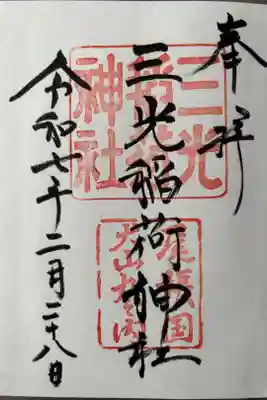 奉拝
三光稲荷神社
令和七年二月二十八日
三光
稲荷
神社
尾張国
犬山
内